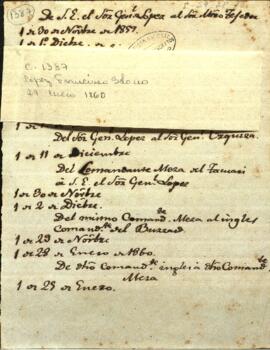 1387
De S. E. el Sor Genl Lopez al Sor Mtro Tejedor
1 de 30 de Nobre de 1859.
1 de 1o Dicbre.
C. 1387
López Francisco Solano
29 Enero 1860
Del Sor Genl Lopez al Sor Genl Urquiza.
1 de 11 de Diciembre
Del Comandante Meza del Tacuarí
á S. E. el Sor Genl Lopez
1 de 30 de Nobre
1 de 2 de Dicbre.
Del mismo Comande Meza al ingles
Comande del Buzzard
1 de 29 de Nobre
1 de 28 de Enero de 1860.
De dho Comande ingles á dho Comande
Meza
1 de 28 de Enero.